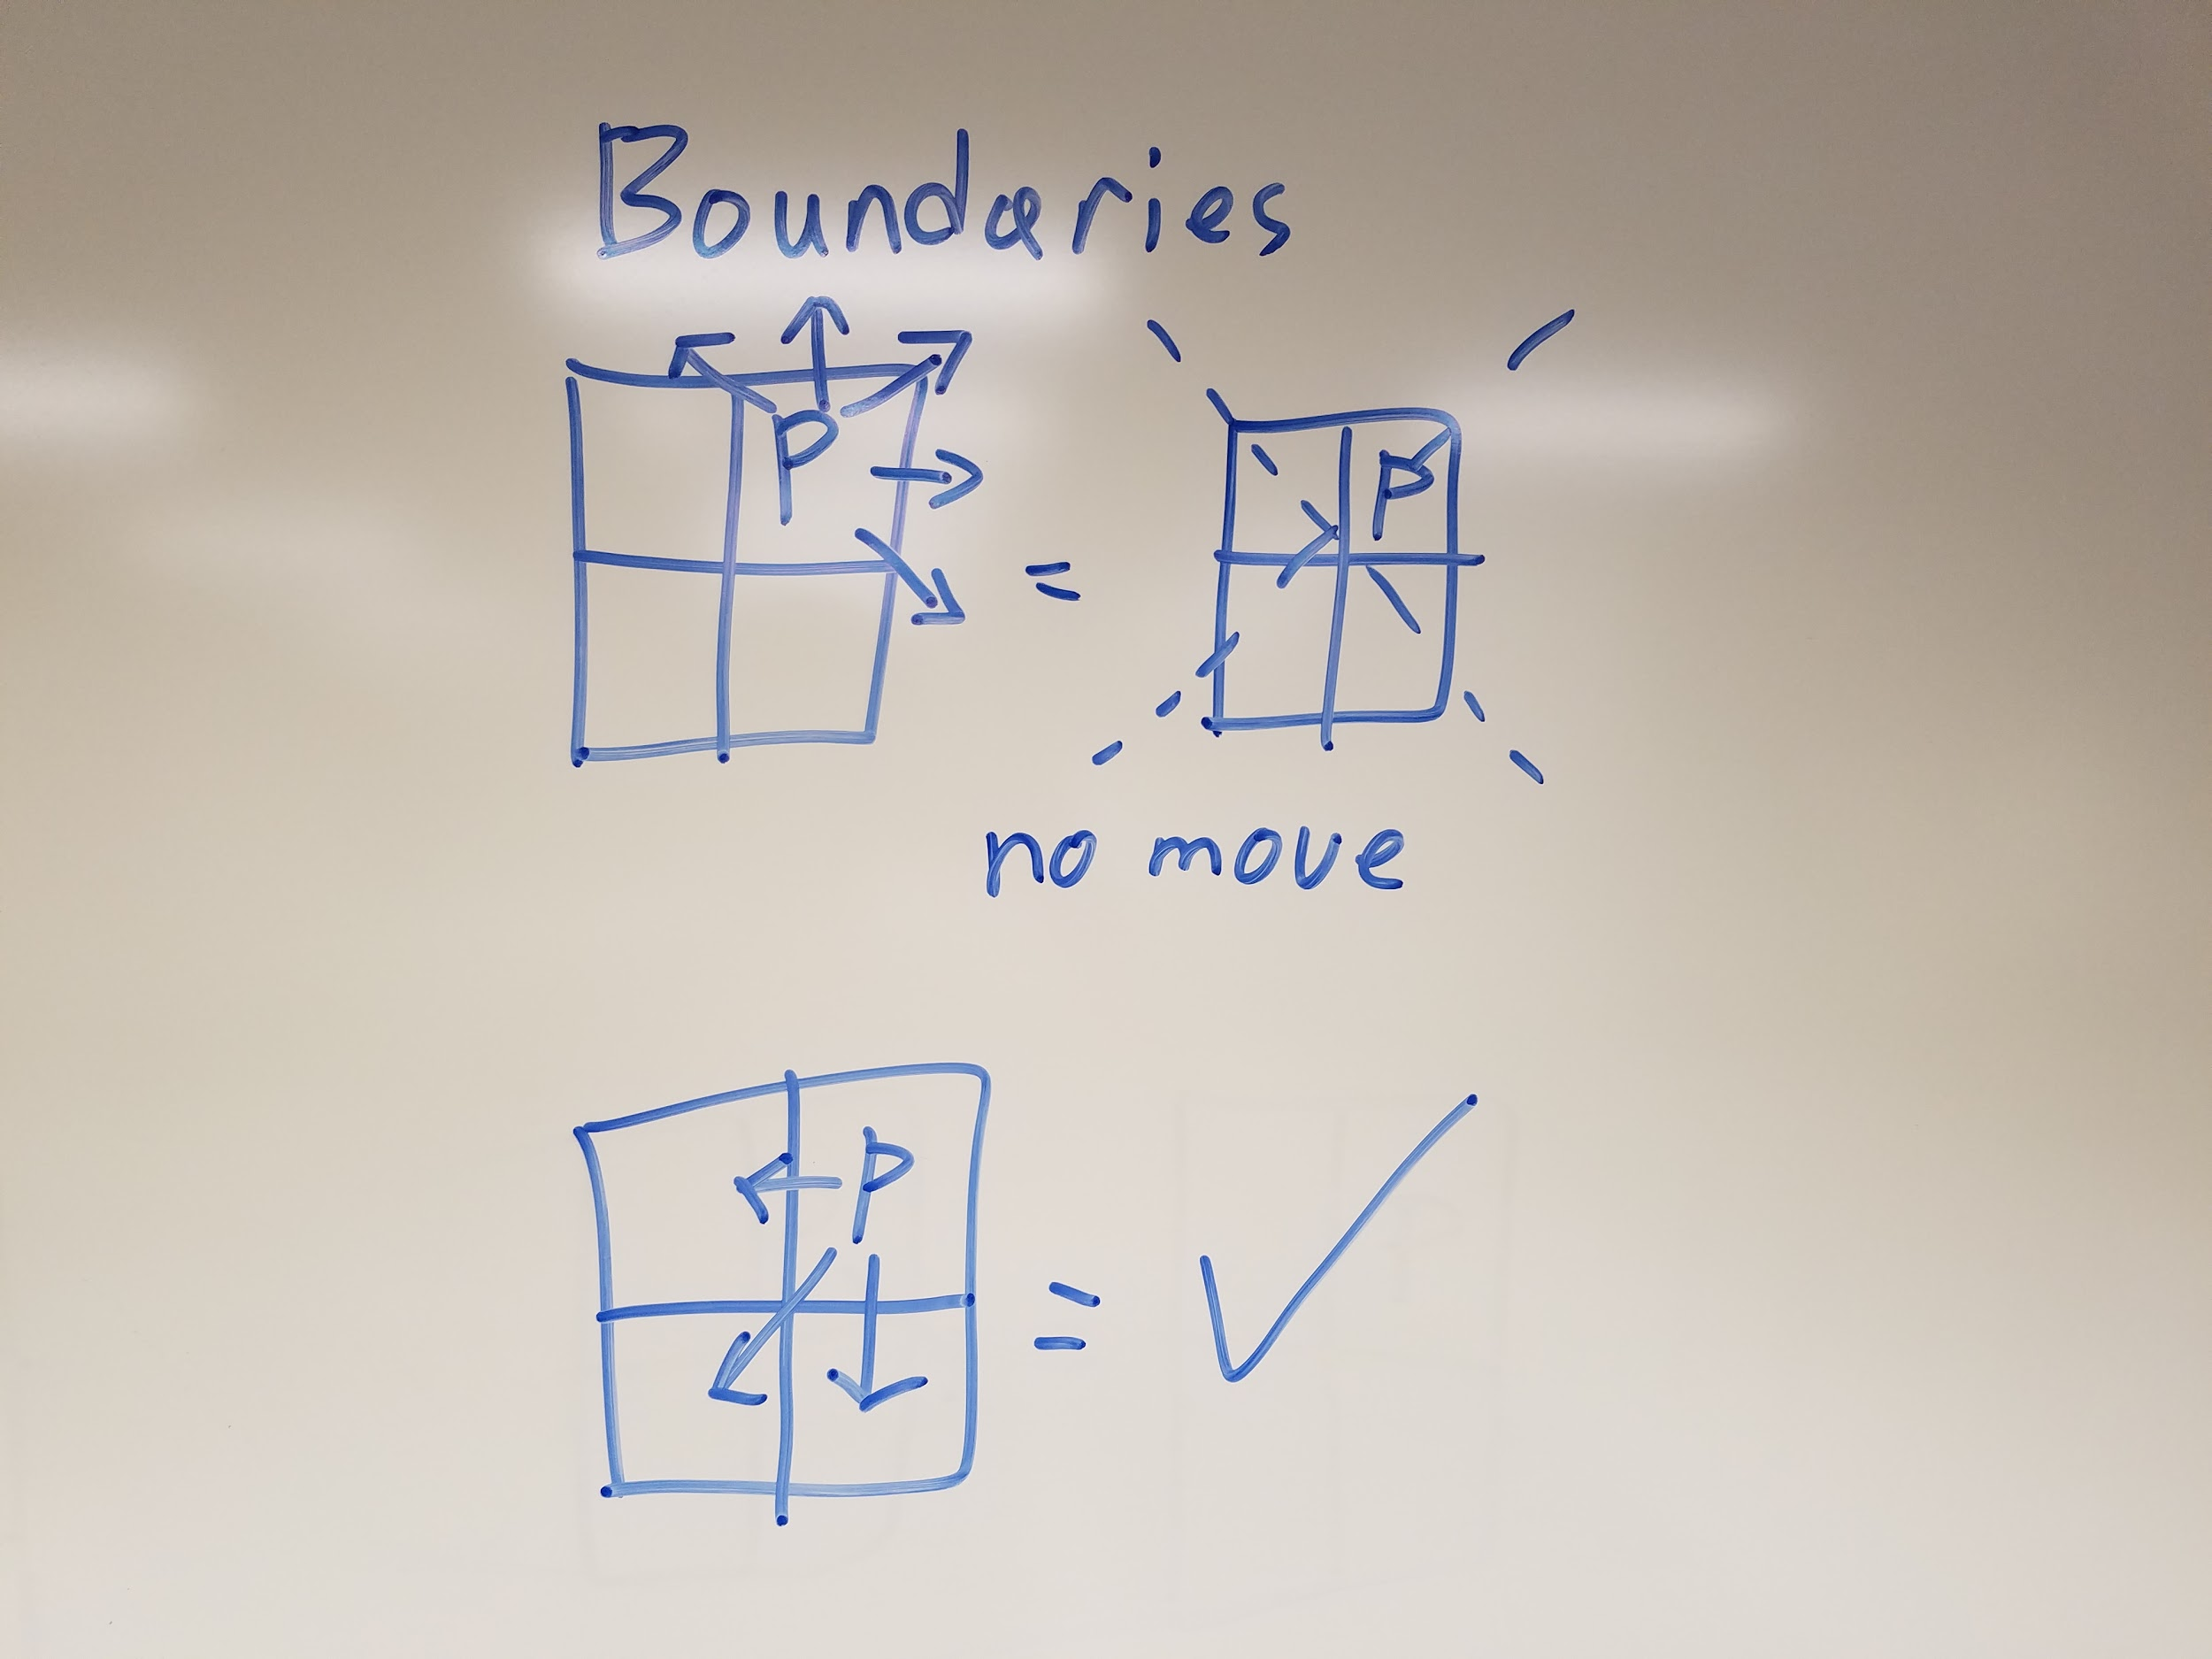 Boundaries
P
=
P
no move
P
=